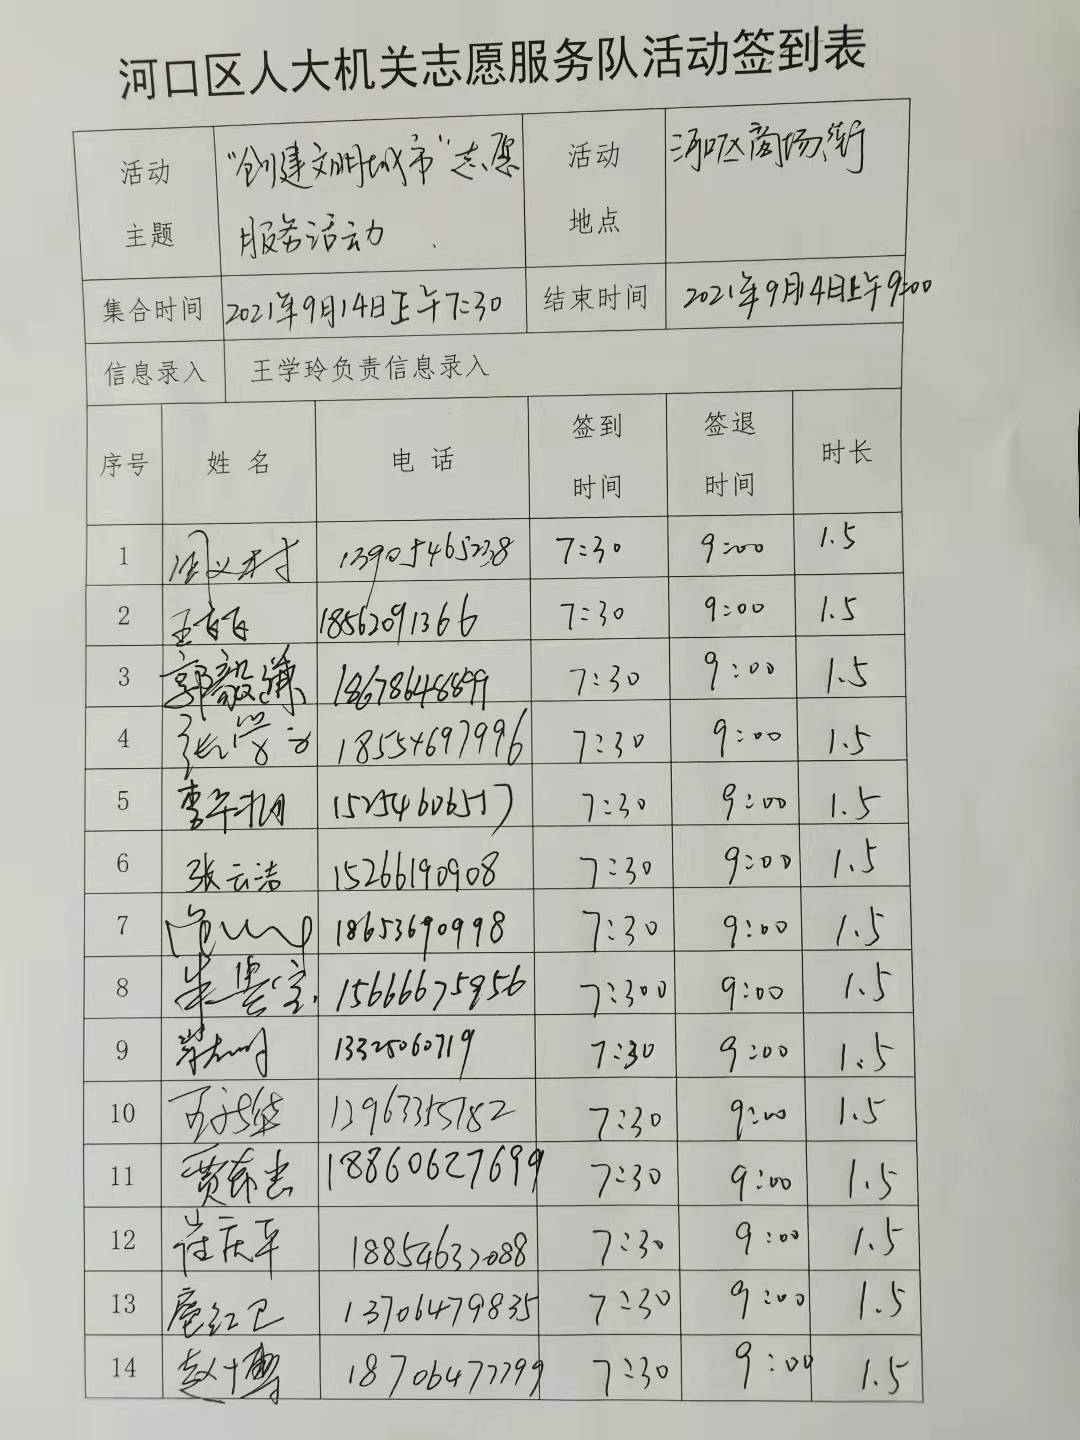 河口区人大机关志愿服务队活动签到表
活动
主题
“创建文明城市”志愿
服务活动
活动
地点
河口区商场街
集合时间
2021年9月14日上午7:30
结束时间
2021年9月14日上午9:00
信息录入
王学玲负责信息录入
序号
姓 名
电 话
签到
时间
签退
时间
时长
1 13905465238 7:30 9:00 1.5
2 18562091366 7:30 9:00 1.5
3 郭毅谦 18678648899 7:30 9:00 1.5
4 18554697996 7:30 9:00 1.5
5 15254606517 7:30 9:00 1.5
6 张云洁 15266190908 7:30 9:00 1.5
7 18653690998 7:30 9:00 1.5
8 15666675956 7:300 9:00 1.5
9 13325060719 7:30 9:00 1.5
10 7:30 9:00 1.5
11 18860627699 7:30 9:00 1.5
12 崔庆平 18854632088 7:30 9:00 1.5
13 庞红卫 13706479835 7:30 9:00 1.5
14 18706477799 7:30 9:00 1.5